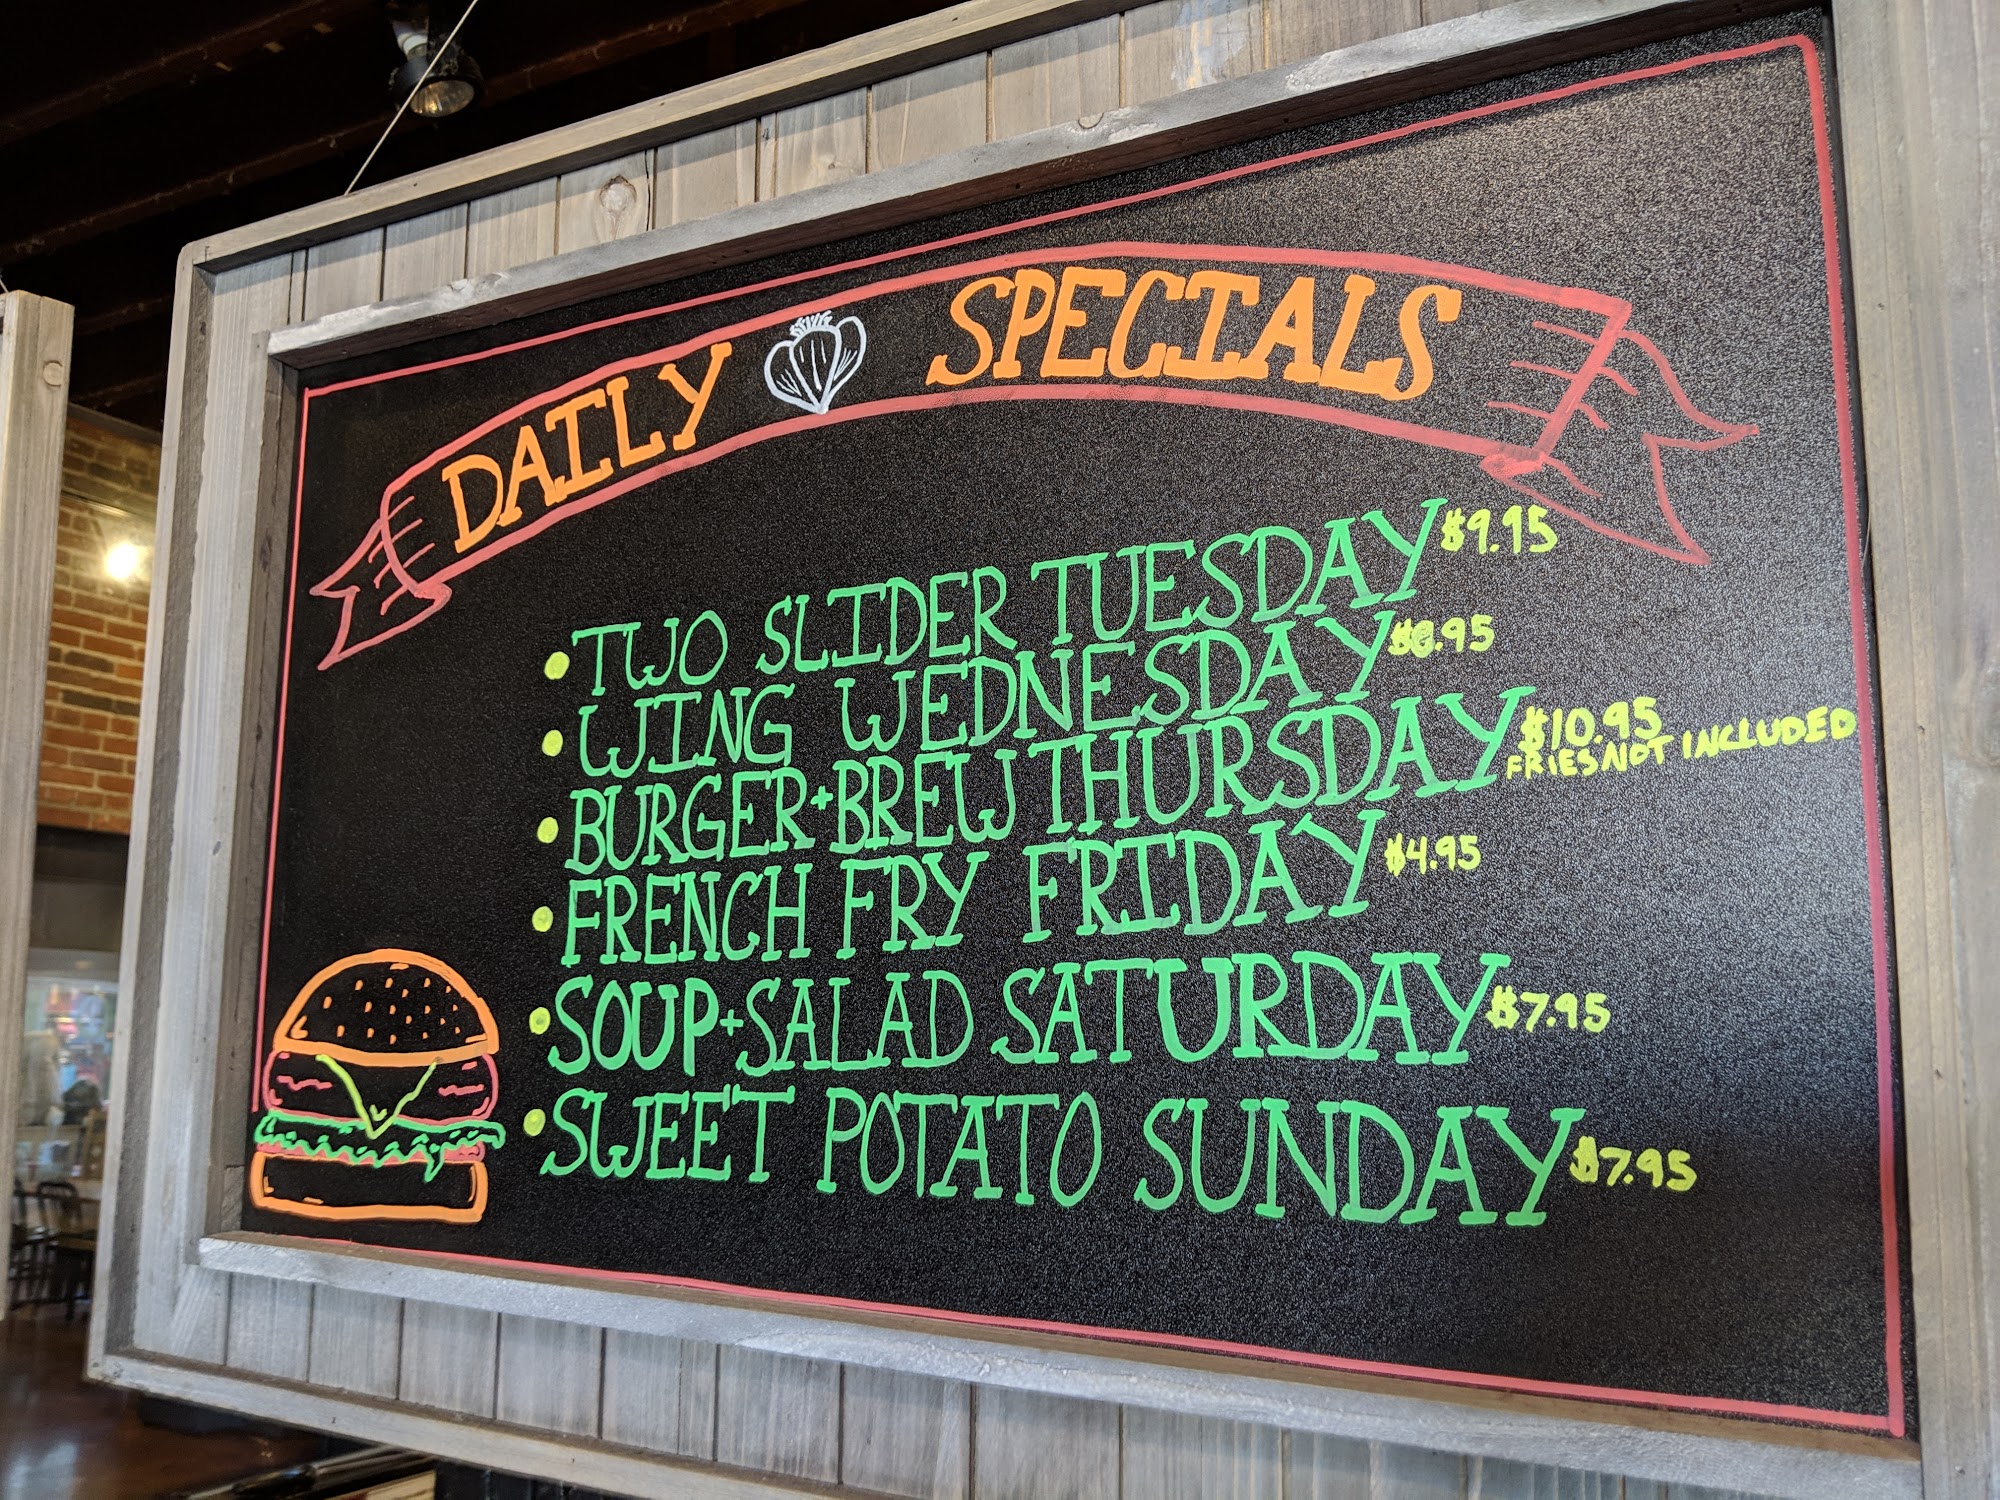 DAILY SPECIALS
• TWO SLIDER TUESDAY $9.95
• WING WEDNESDAY
• BURGER+BREW THURSDAY $10.95
FRIES NOT INCLUDED
• FRENCH FRY FRIDAY $4.95
• SOUP+SALAD SATURDAY $7.95
• SWEET POTATO SUNDAY $7.95